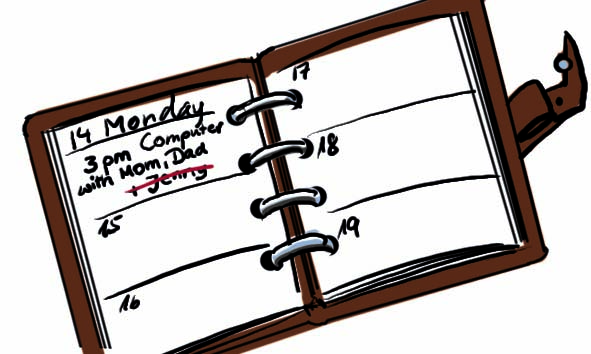 14 Monday
3 pm Computer
with Mom, Dad
+ Jenny
15
16
17
18
19